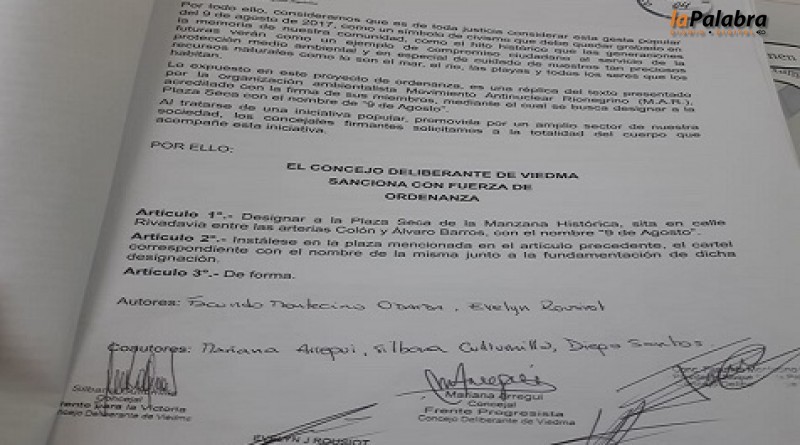 laPalabra
Por todo ello, consideramos que es de toda justicia considerar esta gesta popular
del 9 de agosto de 2017, como un símbolo de civismo que debe quedar grabado en
la memoria de nuestra comunidad, como el hito histórico que las generaciones
futuras verán como un ejemplo de compromiso ciudadano al servicio de la
protección medio ambiental y en especial de cuidado de nuestros tan preciosos
recursos naturales como lo son el mar, el río, las playas y todos los seres que los
habitan.
Lo expuesto en este proyecto de ordenanza, es una réplica del texto presentado
por la organización ambientalista Movimiento Antinuclear Rionegrino (M.A.R.),
acreditado con la firma de sus miembros, mediante el cual se busca designar a la
Plaza Seca con el nombre de "9 de Agosto".
Al tratarse de una iniciativa popular, promovida por un amplio sector de nuestra
sociedad, los concejales firmantes solicitamos a la totalidad del cuerpo que
acompañe esta iniciativa.
POR ELLO:
EL CONCEJO DELIBERANTE DE VIEDMA
SANCIONA CON FUERZA DE
ORDENANZA
Artículo 1°.- Designar a la Plaza Seca de la Manzana Histórica, sita en calle
Rivadavia entre las arterias Colón y Álvaro Barros, con el nombre "9 de Agosto".
Artículo 2°.- Instálese en la plaza mencionada en el artículo precedente, el cartel
correspondiente con el nombre de la misma junto a la fundamentación de dicha
designación.
Artículo 3°.- De forma.
Autores: Facundo Montecino Odarda, Evelyn Rousiot
Coautores: Mariana Arregui, Silbana Cullumilla, Diego Santos.
Concejal
Frente para la Victoria
Concejo Deliberante de Viedma
Mariana Arregui
Concejal
Frente Progresista
Concejo Deliberante de Viedma
EVELYN J ROUSIOT